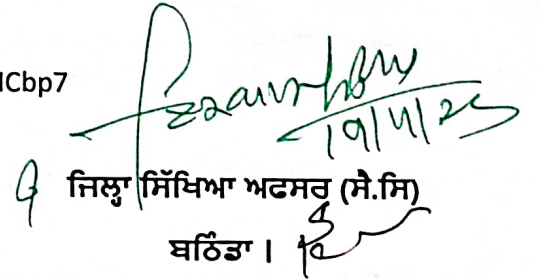 ICbp7
19/11/25
ਜਿਲ੍ਹਾ ਸਿੱਖਿਆ ਅਫਸਰ (ਸੈ.ਸਿ)
ਬਠਿੰਡਾ ।